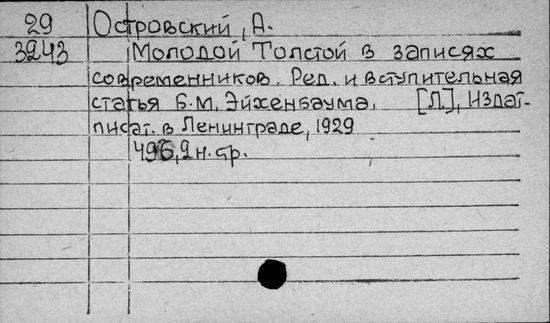 29 Островский, А.
3243 Молодой Толстой в записях
современников. Ред. и вступительная
статья Б.М. Эйхенбаума. [Л.], Издат.
писат. в Ленинграде, 1929
496, 2 н. стр.